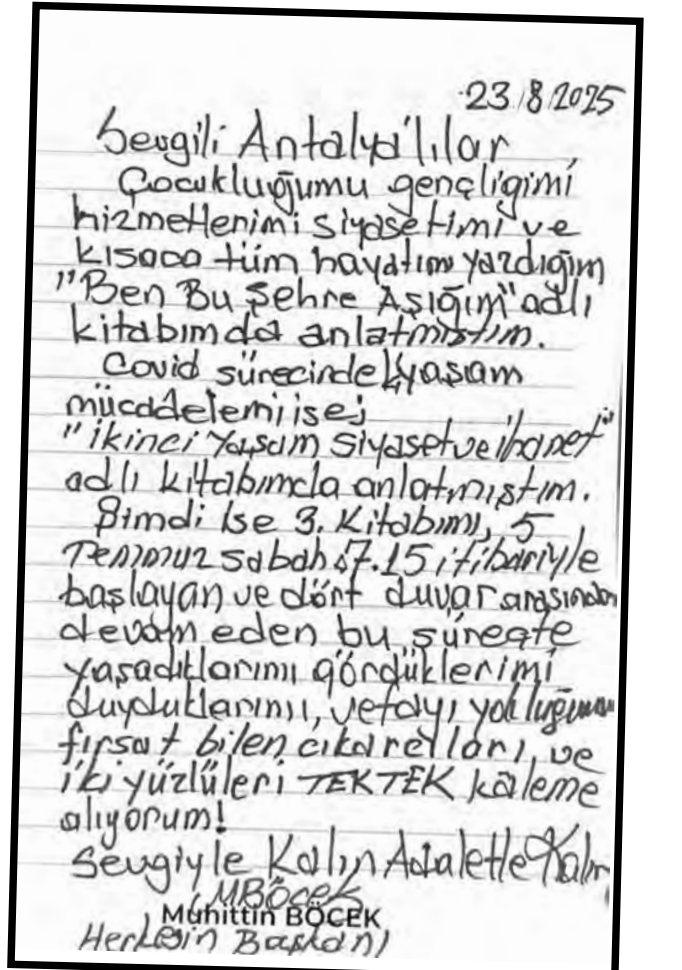 23/8/2025
Sevgili Antalya'lılar
Çocukluğumu gençligimi
hizmetlerimi siyasetimi ve
kısaca tüm hayatımı yazdığım
"Ben Bu Şehre Aşığım" adlı
kitabımda anlatmıştım.
Covid sürecindeki yaşam
mücadelemi ise;
"ikinci Yaşam Siyaset ve ihanet"
adlı kitabımda anlatmıştım.
Şimdi Ise 3. Kitabımı, 5
Temmuz sabah 7.15 itibariyle
başlayan ve dört duvar arasından
devam eden bu süreçte
yaşadıklarımı gördüklerimi
duyduklarımı, vefayı yokluğumu
fırsat bilen çıkarcıları, ve
iki yüzlüleri TEK TEK kaleme
alıyorum!
Sevgiyle Kalın Adaletle Kalın
MBöcek
Muhittin BÖCEK
Herkesin Başkanı